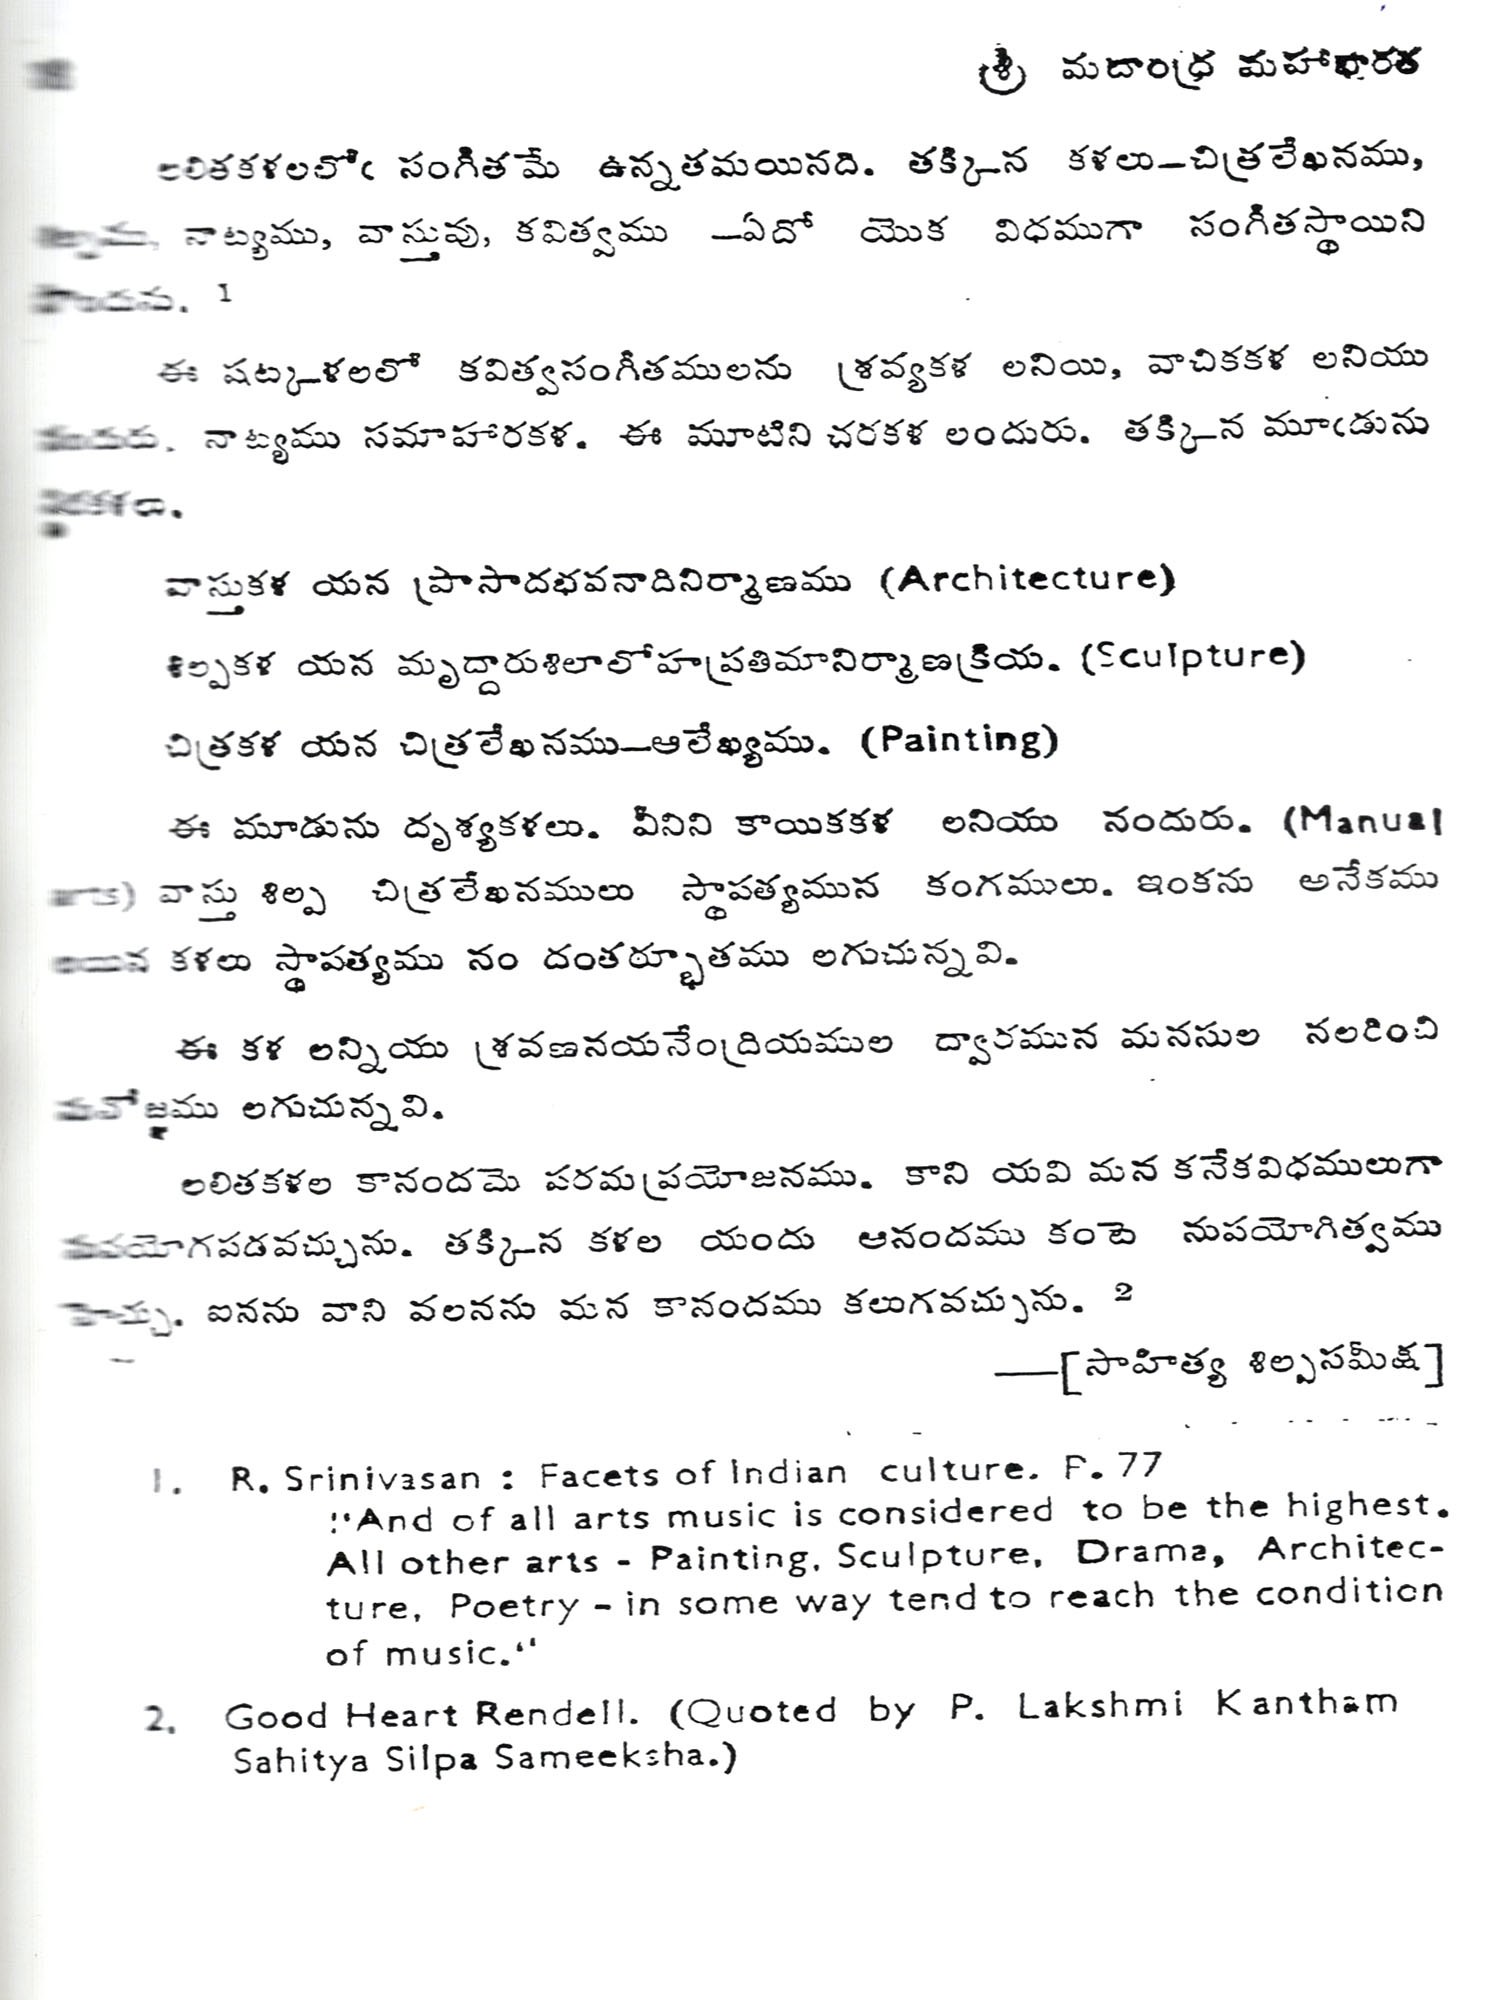 శ్రీ మదాంధ్ర మహాభారత
లలితకళలలోఁ సంగీతమే ఉన్నతమయినది. తక్కిన కళలు—చిత్రలేఖనము,
నాట్యము, వాస్తువు, కవిత్వము —ఏదో యొక విధముగా సంగీతస్థాయిని
పొందును. 1
ఈ షట్కళలలో కవిత్వసంగీతములను శ్రవ్యకళ లనియి, వాచికకళ లనియు
నందురు. నాట్యము సమాహారకళ. ఈ మూటిని చరకళ లందురు. తక్కిన మూఁడును
స్థిరకళలు.
వాస్తుకళ యన ప్రాసాదభవనాదినిర్మాణము (Architecture)
శిల్పకళ యన మృద్దారుశిలాలోహప్రతిమానిర్మాణక్రియ. (Sculpture)
చిత్రకళ యన చిత్రలేఖనము—ఆలేఖ్యము. (Painting)
ఈ మూడును దృశ్యకళలు. వీనిని కాయికకళ లనియు నందురు. (Manual
arts) వాస్తు శిల్ప చిత్రలేఖనములు స్థాపత్యమున కంగములు. ఇంకను అనేకము
లయిన కళలు స్థాపత్యము నం దంతర్భూతము లగుచున్నవి.
ఈ కళ లన్నియు శ్రవణనయనేంద్రియముల ద్వారమున మనసుల నలరించి
మనోజ్ఞము లగుచున్నవి.
లలితకళల కానందమె పరమప్రయోజనము. కాని యవి మన కనేకవిధములుగా
నుపయోగపడవచ్చును. తక్కిన కళల యందు ఆనందము కంటె నుపయోగిత్వము
హెచ్చు. ఐనను వాని వలనను మన కానందము కలుగవచ్చును. 2
—[సాహిత్య శిల్పసమీక్ష]
1. R. Srinivasan : Facets of Indian culture. P. 77
"And of all arts music is considered to be the highest.
All other arts - Painting, Sculpture, Drama, Architec-
ture, Poetry - in some way tend to reach the condition
of music."
2. Good Heart Rendell. (Quoted by P. Lakshmi Kantham
Sahitya Silpa Sameeksha.)